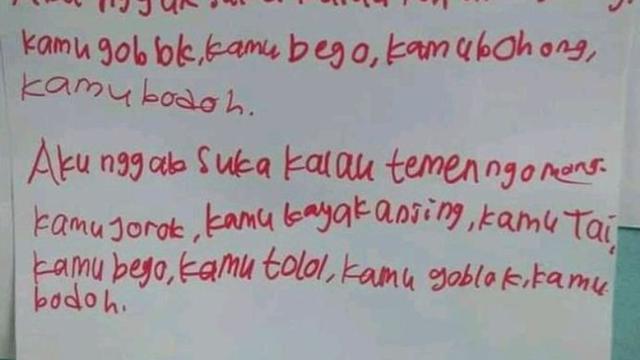 kamu goblok, kamu bego, kamu bohong,
kamu bodoh.
Aku nggab suka kalau temen ngomong.
kamu jorok, kamu kayak anjing, kamu Tai,
kamu bego, kamu tolol, kamu goblok, kamu
bodoh.